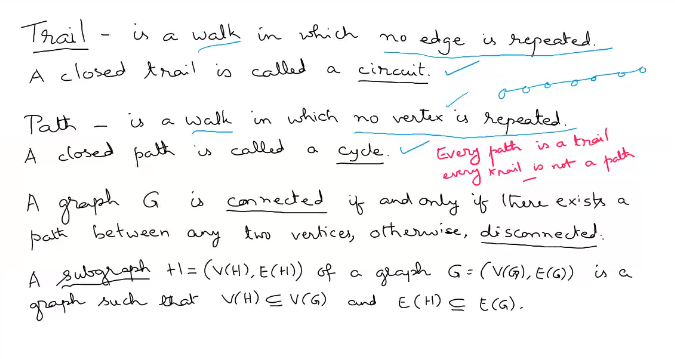 Trail - is a walk in which no edge is repeated.
A closed trail is called a circuit.
Path - is a walk in which no vertex is repeated.
A closed path is called a cycle.
Every path is a trail
every trail is not a path
A graph G is connected if and only if there exists a
path between any two vertices, otherwise, disconnected.
A subgraph H = (V(H), E(H)) of a graph G = (V(G), E(G)) is a
graph such that V(H) ⊆ V(G) and E(H) ⊆ E(G).